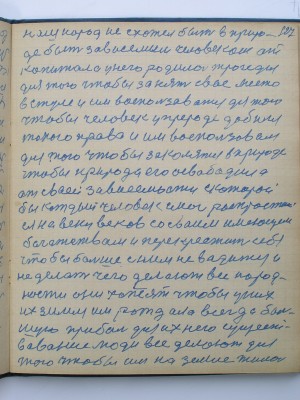 к му народ не схотел быть в природе
де быть зависемым человеком от
капитала у него родился
для того чтобы занять свое место
в стуле и им воспользоваться для того
чтобы человек в природе добился
такого права и им воспользовался
для того чтобы закалятся в природе
чтобы природа его освободила
от своей зависемости с которой
бы каждый человек смог
ся на веки веков со своим имеющим
богатством и перекрестит себя
чтобы больше с ним не видится и
не делать чего делают все народ
ности они хотят чтобы у них
их земля им рождала всегда боль
шую прибыл для их него сущест
вавание люди все делают для
того чтобы им на земле